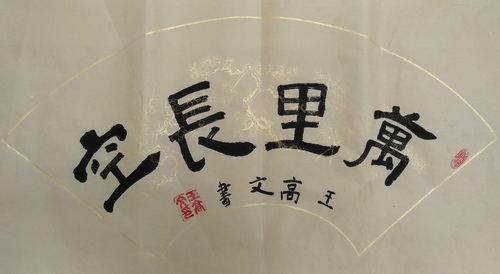 萬里長空
王高文書